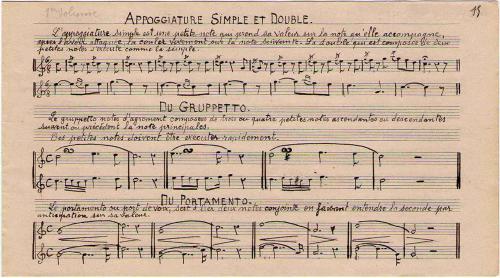 15
APPOGGIATURE SIMPLE ET DOUBLE.
L'appoggiature simple est une petite note qui prend sa valeur sur la note qu'elle accompagne,
après l'avoir attaqué, la couler vivement sur la note suivante. La double qui est composée de deux
petites notes s'exécute comme la simple.
DU GRUPPETTO.
Le gruppetto notes d'agrement composees de trois ou quatre petites notes ascendantes ou descendantes
suivent ou précèdent la note principales.
Ces petites notes doivent être executer rapidement.
DU PORTAMENTO.
Le portamento ou port de voix, sert à lier deux notes conjointe en faisant entendre la seconde par
anticipation sur sa valeur.